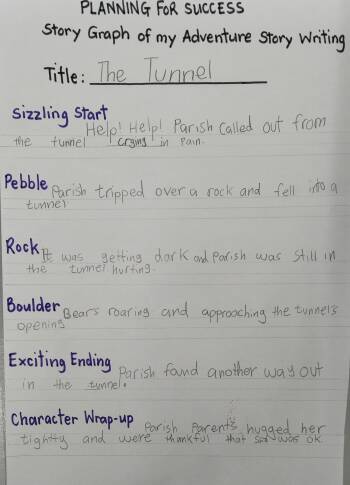 PLANNING FOR SUCCESS
Story Graph of my Adventure Story Writing
Title: The Tunnel
Sizzling Start
Help! Help! Parish called out from
the tunnel crying in pain.
Pebble Parish tripped over a rock and fell into a
tunnel
Rock It was getting dark and Parish was still in
the tunnel hurting.
Boulder Bears roaring and approaching the tunnels
opening
Exciting Ending Parish found another way out
in the tunnel.
Character Wrap-up Parish Parents hugged her
tightly and were thankful that she was ok